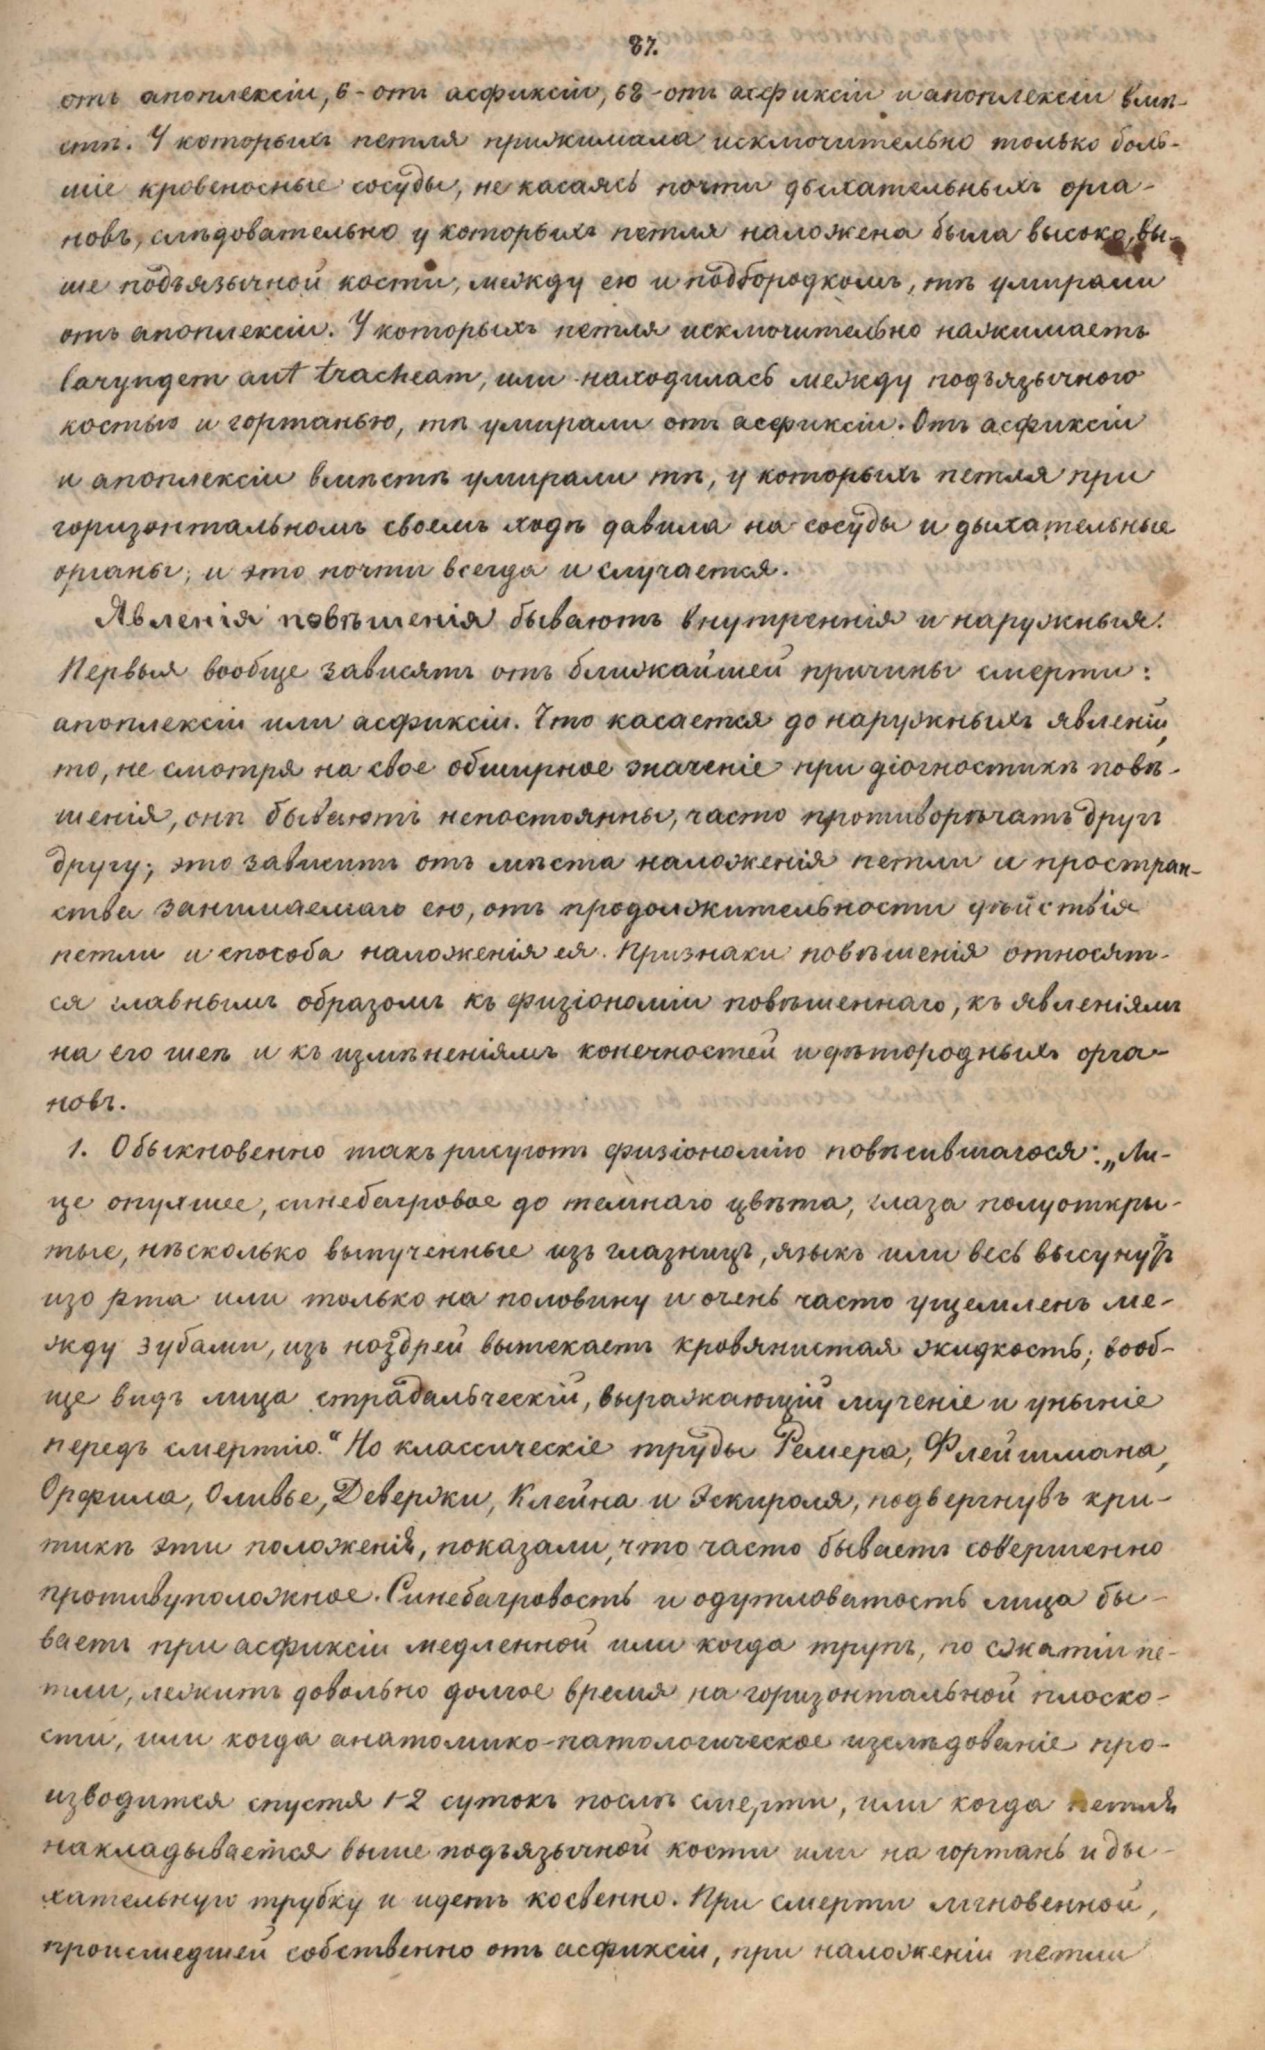 87.
отъ апоплексіи, 6 - отъ асфиксіи, 68 - отъ асфиксіи и апоплексіи вмѣ-
стѣ. У которыхъ петля прижимала исключительно только боль-
шіе кровеносные сосуды, не касаясь почти дыхательныхъ орга-
новъ, слѣдовательно у которыхъ петля наложена была высоко, вы-
ше подъязычной кости, между ею и подбородкомъ, тѣ умирали
отъ апоплексіи. У которыхъ петля исключительно нажимаетъ
laryngem aut tracheam, или находилась между подъязычною
костью и гортанью, тѣ умирали отъ асфиксіи. Отъ асфиксіи
и апоплексіи вмѣстѣ умирали тѣ, у которыхъ петля при
горизонтальномъ своемъ ходѣ давила на сосуды и дыхательные
органы; и это почти всегда и случается.
Явленія повѣшенія бываютъ внутреннія и наружныя.
Первыя вообще зависятъ отъ ближайшей причины смерти:
апоплексіи или асфиксіи. Что касается до наружныхъ явленій,
то, не смотря на свое обширное значеніе при діогностикѣ повѣ-
шенія, онѣ бываютъ непостоянны, часто противорѣчатъ другъ
другу; это зависитъ отъ мѣста наложенія петли и простран-
ства занимаемаго ею, отъ продолжительности дѣйствія
петли и способа наложенія ея. Признаки повѣшенія относят-
ся главнымъ образомъ къ физіономіи повѣшеннаго, къ явленіямъ
на его шеѣ и къ измѣненіямъ конечностей и дѣтородныхъ орга-
новъ.
1. Обыкновенно такъ рисуютъ физіономію повѣсившагося: „Ли-
це опухшее, синебагровое до темнаго цвѣта, глаза полуоткры-
тые, нѣсколько выпученные изъ глазницъ, языкъ или весь высунутъ
изо рта или только на половину и очень часто ущемленъ ме-
жду зубами, изъ ноздрей вытекаетъ кровянистая жидкость; вооб-
ще видъ лица страдальческій, выражающій мученіе и уныніе
передъ смертію.“ Но классическіе труды Ремера, Флейшмана,
Орфила, Оливье, Девержи, Клейна и Эскироля, подвергнувъ кри-
тикѣ эти положенія, показали, что часто бываетъ совершенно
противуположное. Синебагровость и одутловатость лица бы-
ваетъ при асфиксіи медленной или когда трупъ, по сжатіи пе-
тли, лежитъ довольно долгое время на горизонтальной плоско-
сти, или когда анатомико-патологическое изслѣдованіе про-
изводится спустя 1-2 сутокъ послѣ смерти, или когда петля
накладывается выше подъязычной кости или на гортань и ды-
хательную трубку и идетъ косвенно. При смерти мгновенной,
происшедшей собственно отъ асфиксіи, при наложеніи петли